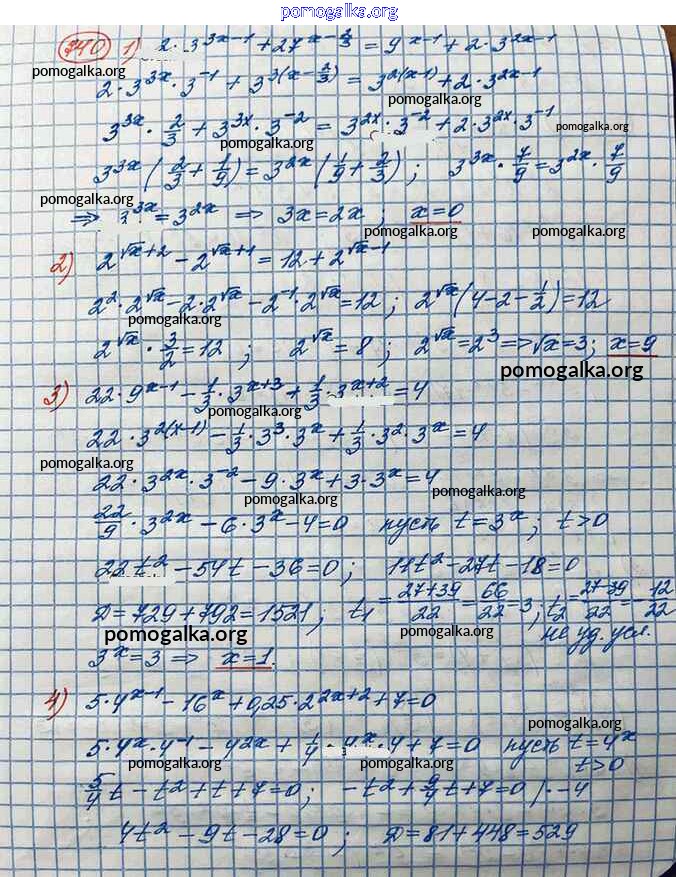 pomogalka.org
740 1) 2·3^{3x-1} + 27^{x-2/3} = 9^{x-1} + 2·3^{2x-1}
pomogalka.org
2·3^{3x}·3^{-1} + 3^{3(x-2/3)} = 3^{2(x-1)} + 2·3^{2x-1}
pomogalka.org
3^{3x}·2/3 + 3^{3x}·3^{-2} = 3^{2x}·3^{-2} + 2·3^{2x}·3^{-1}
pomogalka.org
3^{3x}(2/3 + 1/9) = 3^{2x}(1/9 + 2/3); 3^{3x}·7/9 = 3^{2x}·7/9
pomogalka.org
⇒ 3^{3x} = 3^{2x} ⇒ 3x = 2x; x = 0
pomogalka.org pomogalka.org
2) 2^{√x+2} - 2^{√x+1} = 12 + 2^{√x-1}
2^2·2^{√x} - 2·2^{√x} - 2^{-1}·2^{√x} = 12; 2^{√x}(4-2-1/2) = 12
pomogalka.org
2^{√x}·3/2 = 12; 2^{√x} = 8; 2^{√x} = 2^3 ⇒ √x = 3; x = 9
pomogalka.org
3) 22·9^{x-1} - 1/3·3^{x+3} + 1/3·3^{x+2} = 4
pomogalka.org
22·3^{2(x-1)} - 1/3·3^3·3^x + 1/3·3^2·3^x = 4
pomogalka.org
22·3^{2x}·3^{-2} - 9·3^x + 3·3^x = 4
pomogalka.org pomogalka.org
22/9·3^{2x} - 6·3^x - 4 = 0 пусть t = 3^x; t > 0
22t^2 - 54t - 36 = 0; 11t^2 - 27t - 18 = 0
D = 729 + 792 = 1521; t_1 = (27+39)/22 = 66/22 = 3; t_2 = (27-39)/22 = -12/22
pomogalka.org pomogalka.org не уд. усл.
3^x = 3 ⇒ x = 1.
4) 5·4^{x-1} - 16^x + 0,25·2^{2x+2} + 7 = 0
pomogalka.org
5·4^x·4^{-1} - 4^{2x} + 1/4·4^x·4 + 7 = 0 пусть t = 4^x
pomogalka.org pomogalka.org t > 0
5/4t - t^2 + t + 7 = 0; -t^2 + 9/4t + 7 = 0 |·-4
4t^2 - 9t - 28 = 0; D = 81 + 448 = 529
pomogalka.org pomogalka.org